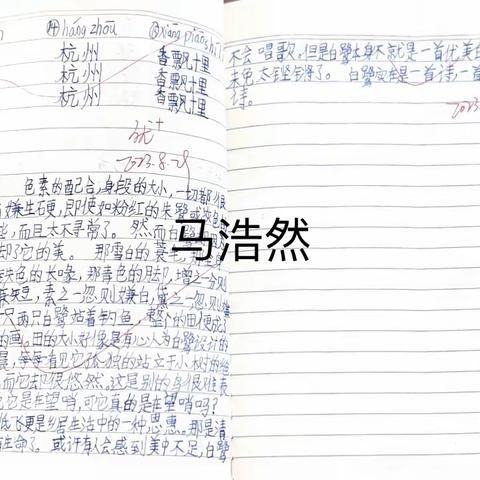 ⑭ háng zhōu ⑮ xiāng piāo shí lǐ
杭州 香飘十里
杭州 香飘十里
杭州 香飘十里
优+
2023.8.29
色素的配合,身段的大小,一切都很
嫌生硬,即使如粉红的朱鹭或灰色
些,而且太不寻常了。然而白鹭
却了它的美。那雪白的蓑毛,那全身
铁色的长喙,那青色的脚,增之一分则
嫌短,素之一忽则嫌白,黛之一忽则嫌
只两只白鹭站着钓鱼,整个的田便成了
的画。田的大小好像是有心人为白鹭设计的
晨,每每看见它孤独的站立于小树的绝
而它却很悠然。这是别的鸟很难表
它是在望哨,可它真的是在望哨吗?
低飞更是乡居生活中的一种恩惠。那是清
生命了。或许有人会感到美中不足,白鹭
不会唱歌。但是白鹭本身不就是一首优美的
未免太铿锵了。白鹭实在是一首诗,一首
诗。
2023
马浩然